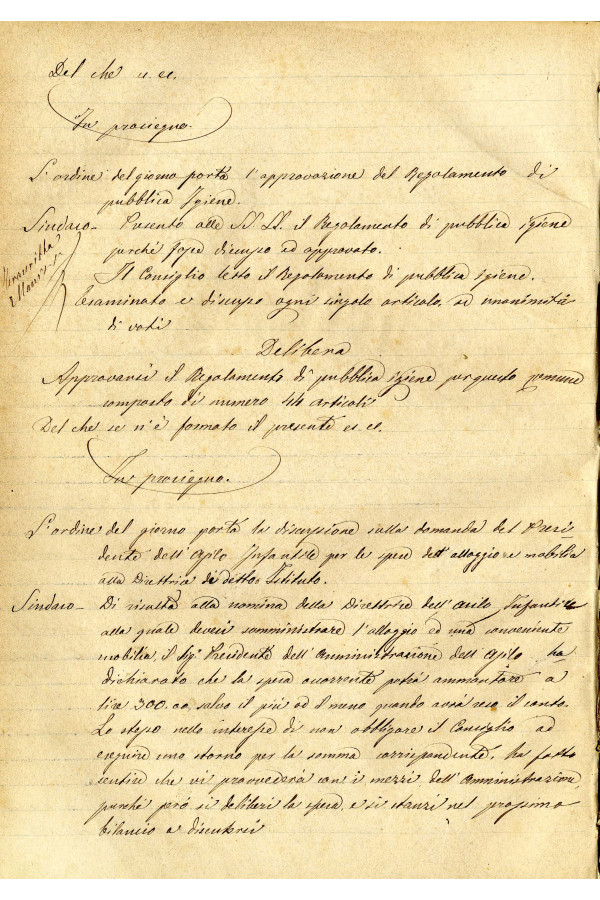 Del che u. cc.
In prosieguo.
L'ordine del giorno porta l'approvazione del Regolamento di
pubblica Igiene.
Sindaco - Presento alle SS. LL. il Regolamento di pubblica igiene
perché fosse discusso ed approvato.
Il Consiglio letto il Regolamento di pubblica igiene.
Esaminato e discusso ogni singolo articolo, ad unanimità
di voti
Delibera
Approvarsi il Regolamento di pubblica igiene per questo comune
composto di numero 44 articoli
Del che se n'è formato il presente es. cc.
In prosieguo.
L'ordine del giorno porta la discussione sulla domanda del Presi-
dente dell'Asilo Infantile per le spese dell'alloggio e mobilia
alla Direttrice di detto Istituto.
Sindaco - Di risulta alla nomina della Direttrice dell'asilo Infantile
alla quale devesi somministrare l'alloggio ed una conveniente
mobilia, il Sig. Presidente dell'Amministrazione dell'Asilo ha
dichiarato che la spesa occorrente potrà ammontare a
lire 300.00, salvo il più od il meno quando avrà reso il conto.
Lo stesso nello interesse di non obbligare il Consiglio ad
eseguire uno storno per la somma corrispondente, ha fatto
sentire che vi provvederà con i mezzi dell'Amministrazione,
purché però si deliberi la spesa, e si stanzi nel prossimo
bilancio a discutersi